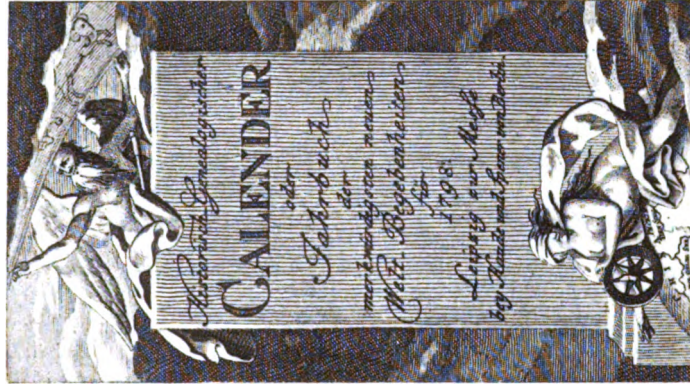 Historisch Genealogischer
CALENDER
oder
Jahrbuch
der
merkwürdigsten neuen
Welt-Begebenheiten
für
1798.
Leipzig zur Messe
bey Haude und Spener von Berlin.